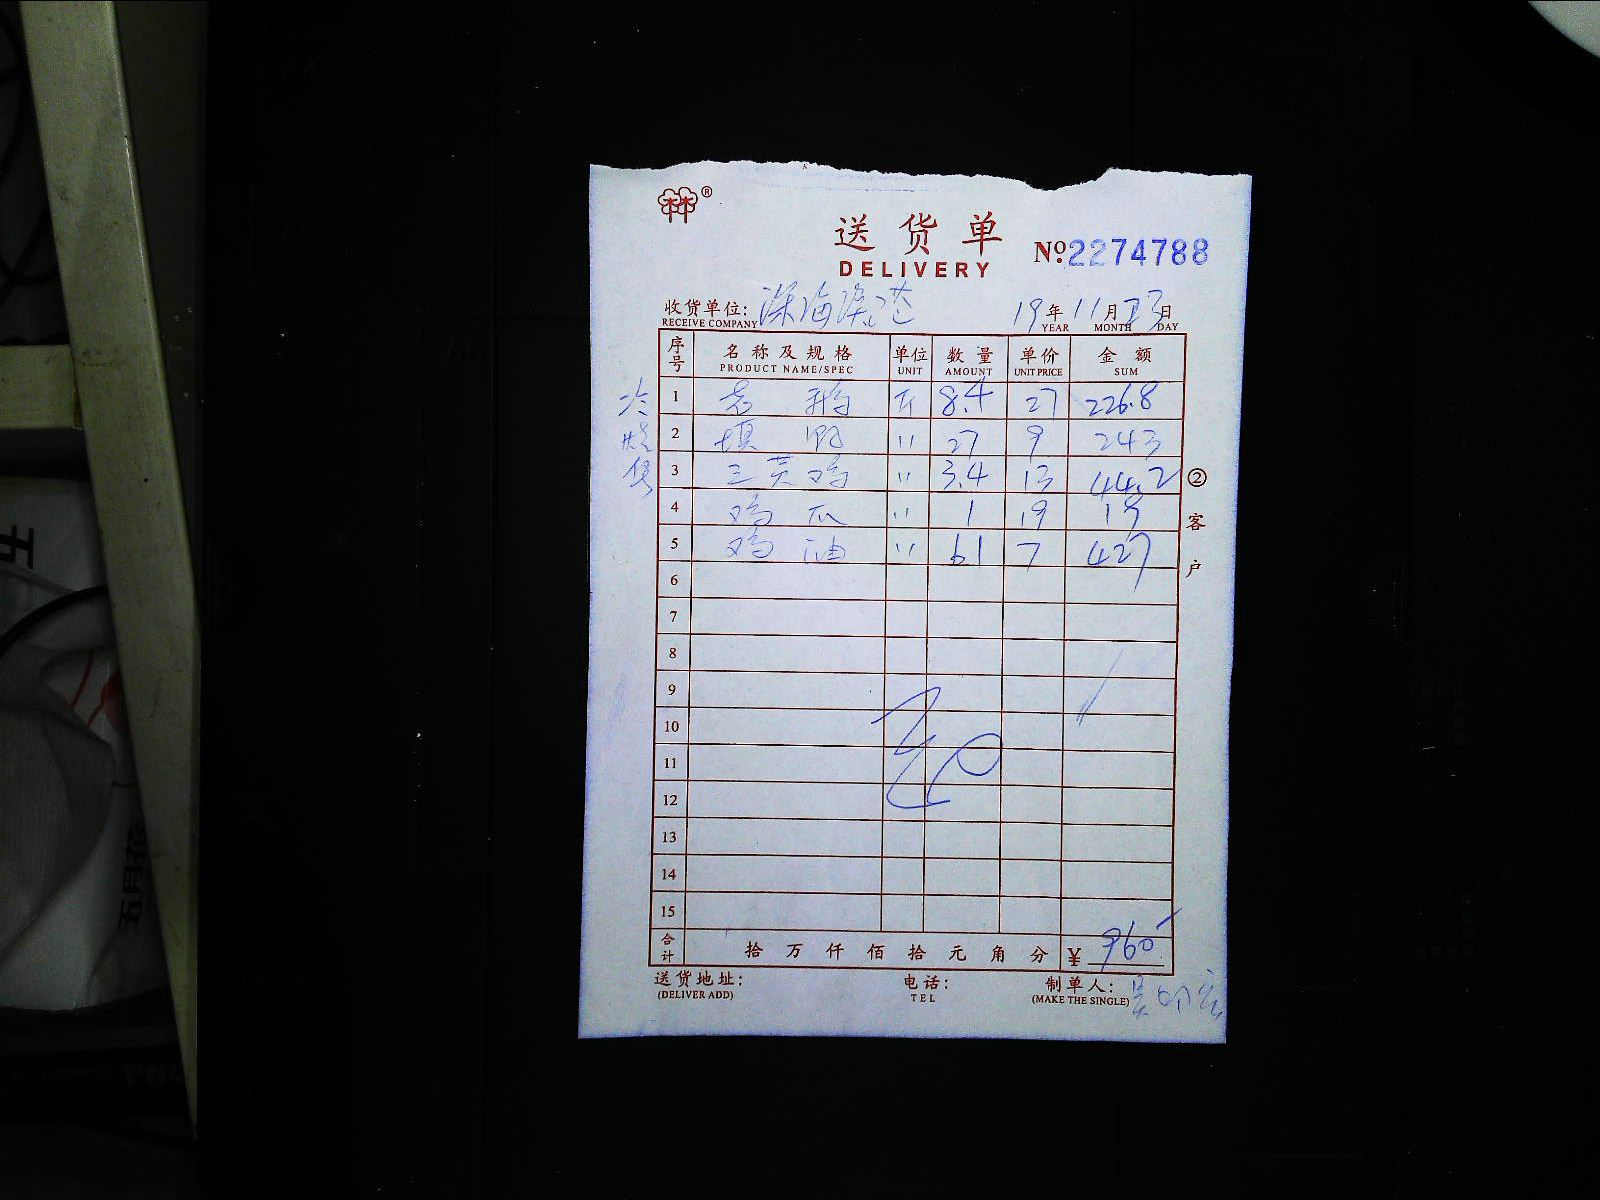 ®
送货单
DELIVERY
№:2274788
收货单位: 深海渔港 19年11月23日
RECEIVE COMPANY YEAR MONTH DAY
序号 名称及规格 单位 数量 单价 金额
PRODUCT NAME/SPEC UNIT AMOUNT UNIT PRICE SUM
1 老鹅 斤 8.4 27 226.8
2 填鸭 〃 27 9 243
3 三黄鸡 〃 3.4 13 44.2
4 鸡爪 〃 1 19 19
5 鸡油 〃 61 7 427
6
7
8
9
10
11
12
13
14
15
合计 拾万仟佰拾元角分 ¥960
送货地址: 电话: 制单人: 吴
(DELIVER ADD) TEL (MAKE THE SINGLE)
②客户
冷烧
五
五月花